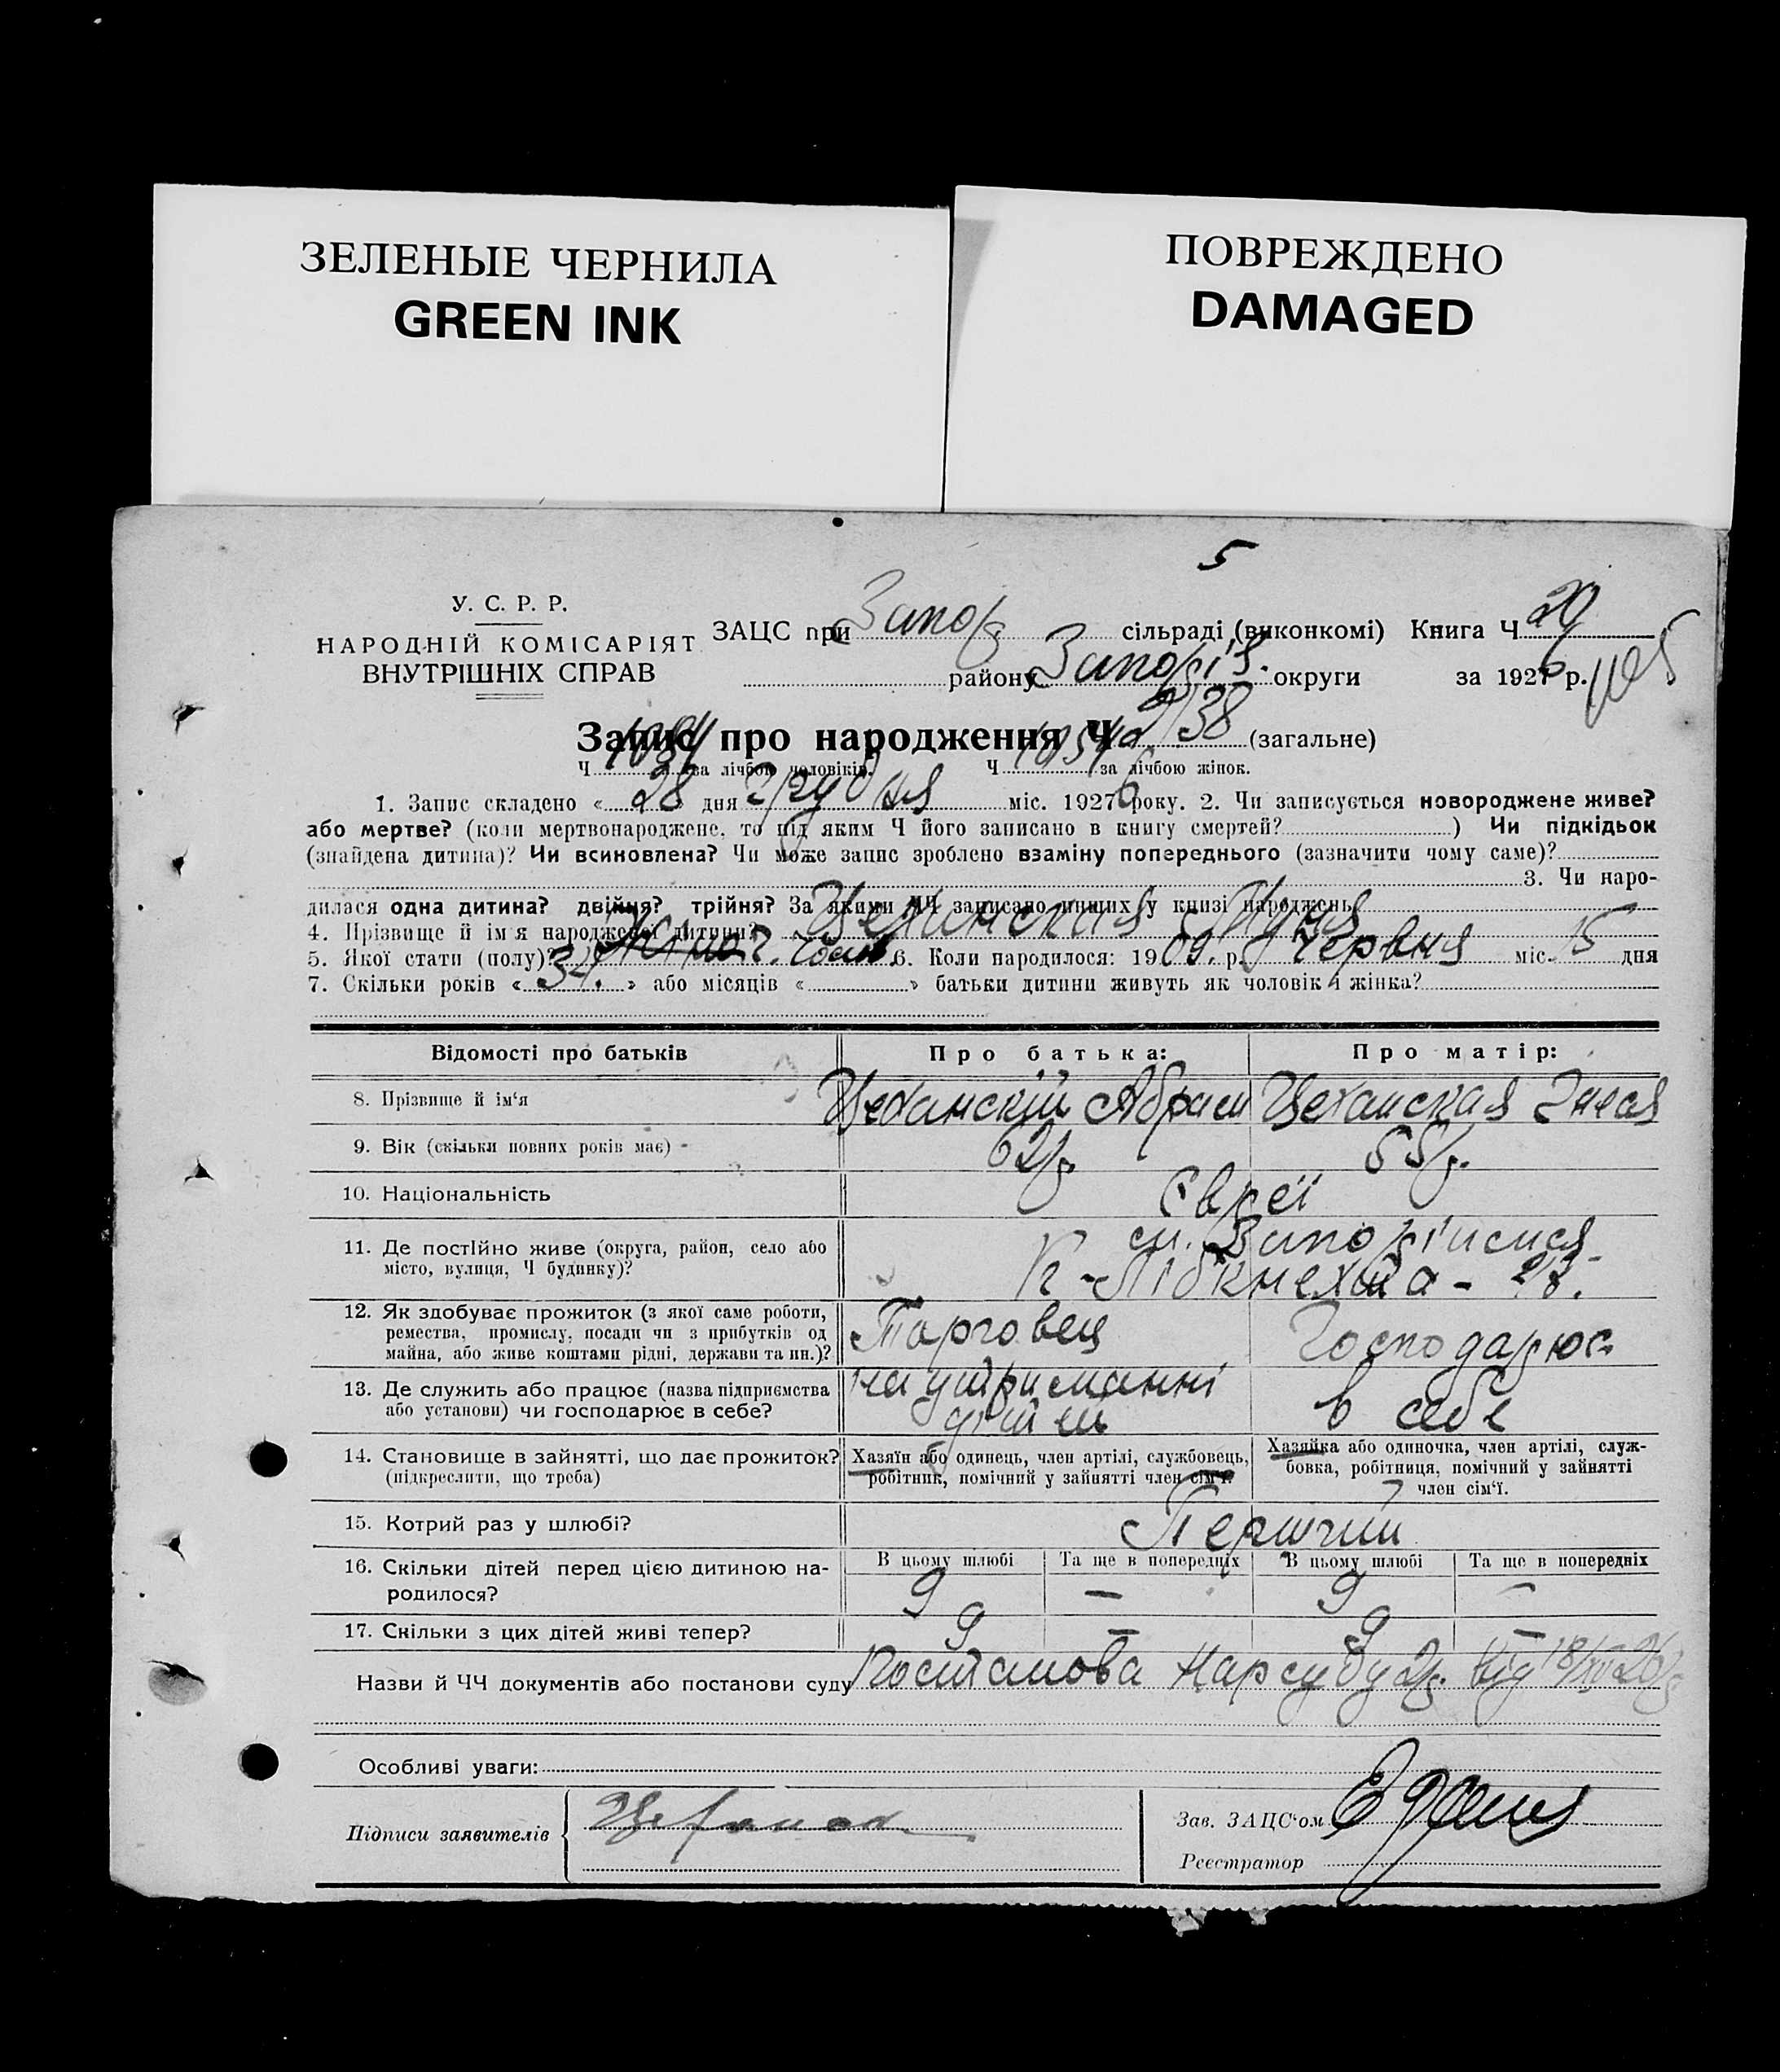 ЗЕЛЕНЫЕ ЧЕРНИЛА
GREEN INK
ПОВРЕЖДЕНО
DAMAGED
5
У. С. Р. Р.
НАРОДНІЙ КОМІСАРІЯТ
ВНУТРІШНІХ СПРАВ
ЗАЦС при Запор сільраді (виконкомі) Книга Ч 29
району Запоріз. округи за 1926 р.
Запис про народження Ч 2138 (загальне)
Ч 1084 за лічбою чоловіків. Ч 1054 за лічбою жінок.
1. Запис складено « 28 дня Грудня міс. 1926 року. 2. Чи записується новороджене живе?
або мертве? (коли мертвонароджене, то під яким Ч його записано в книгу смертей? ) Чи підкідьок
(знайдена дитина)? Чи всиновлена? Чи може запис зроблено взаміну попереднього (зазначити чому саме)?
3. Чи наро-
дилася одна дитина? двійня? трійня? За якими ЧЧ записано инших у книзі народжень
4. Прізвище й імя народженої дитини? Цеханская
5. Якої стати (полу)? 6. Коли народилося: 1909 р. Червня міс. 15 дня
7. Скільки років « 32. » або місяців « » батьки дитини живуть як чоловік і жінка?
Відомості про батьків Про батька: Про матір:
8. Прізвище й ім'я Цеханскій Абрам Цеханская
9. Вік (скільки повних років має) 62 р. 55 р.
10. Національність Євреї
11. Де постійно живе (округа, район, село або
місто, вулиця, Ч будинку)? К-Лібкнехта - 27.
12. Як здобуває прожиток (з якої саме роботи,
ремества, промислу, посади чи з прибутків од
майна, або живе коштами рідні, держави та ин.)? Торговец Господарює
13. Де служить або працює (назва підприємства
або установи) чи господарює в себе? на утриманні дітей в себе
14. Становище в зайнятті, що дає прожиток?
(підкреслити, що треба)
Хазяїн або одинець, член артілі, службовець,
робітник, помічний у зайнятті член сім'ї.
Хазяйка або одиночка, член артілі, служ-
бовка, робітниця, помічний у зайнятті
член сім'ї.
15. Котрий раз у шлюбі? Перший
16. Скільки дітей перед цією дитиною на-
родилося?
В цьому шлюбі Та ще в попередніх В цьому шлюбі Та ще в попередніх
9 — 9 —
17. Скільки з цих дітей живі тепер? 9 — 9 —
Назви й ЧЧ документів або постанови суду Постанова Нарсуду 2 р. від 18/XII 26 р
Особливі уваги:
Підписи заявителів
Зав. ЗАЦС'ом
Реєстратор